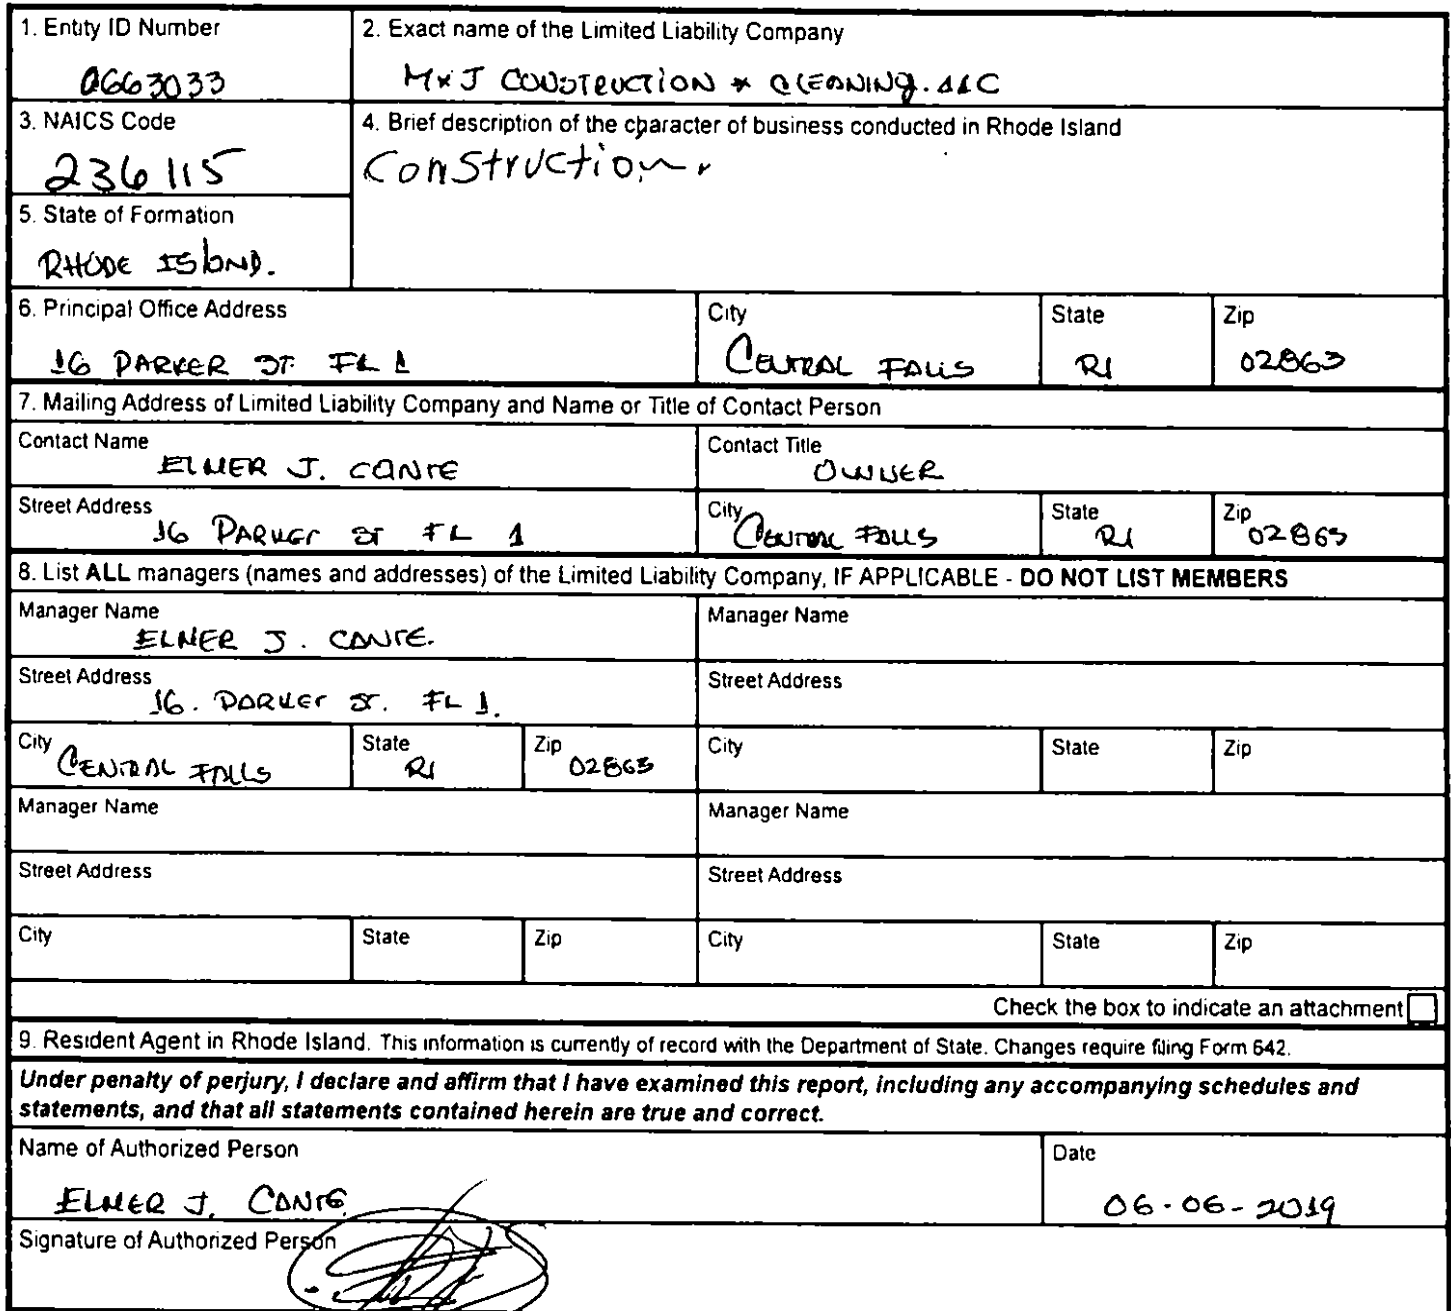 1. Entity ID Number
2. Exact name of the Limited Liability Company
0663033
MxJ CONSTRUCTION * CLEANING. LLC
3. NAICS Code
4. Brief description of the character of business conducted in Rhode Island
236115
Construction.
5. State of Formation
RHODE ISLAND.
6. Principal Office Address
City
State
Zip
16 PARKER ST. FL 1
CENTRAL FALLS
RI
02863
7. Mailing Address of Limited Liability Company and Name or Title of Contact Person
Contact Name
ELMER J. CANTE
Contact Title
OWNER
Street Address
16 PARKer ST FL 1
City
CENTRAL FALLS
State
RI
Zip
02863
8. List ALL managers (names and addresses) of the Limited Liability Company, IF APPLICABLE - DO NOT LIST MEMBERS
Manager Name
ELMER J. CANTE.
Manager Name
Street Address
16. PARKer ST. FL 1.
Street Address
City
CENTRAL FALLS
State
RI
Zip
02863
City
State
Zip
Manager Name
Manager Name
Street Address
Street Address
City
State
Zip
City
State
Zip
Check the box to indicate an attachment
9. Resident Agent in Rhode Island. This information is currently of record with the Department of State. Changes require filing Form 642.
Under penalty of perjury, I declare and affirm that I have examined this report, including any accompanying schedules and
statements, and that all statements contained herein are true and correct.
Name of Authorized Person
Date
ELMER J. CANTE
06-06-2019
Signature of Authorized Person